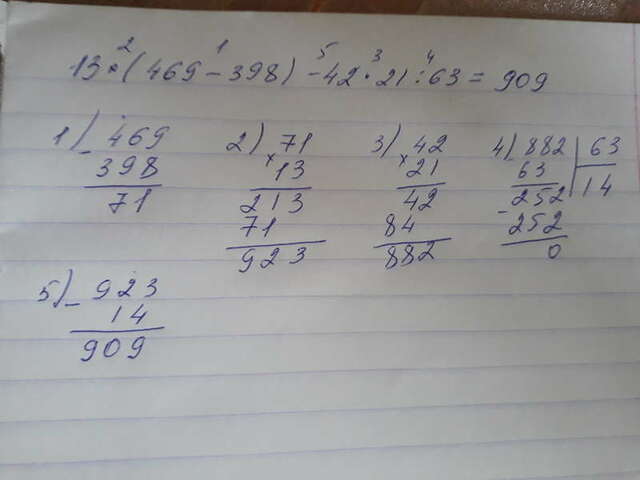 13·(469-398)-42·21:63=909
2 1 5 3 4
1) 469
- 398
71
2) 71
× 13
213
71
923
3) 42
× 21
42
84
882
4) 882 | 63
63 | 14
- 252
252
0
5) 923
- 14
909